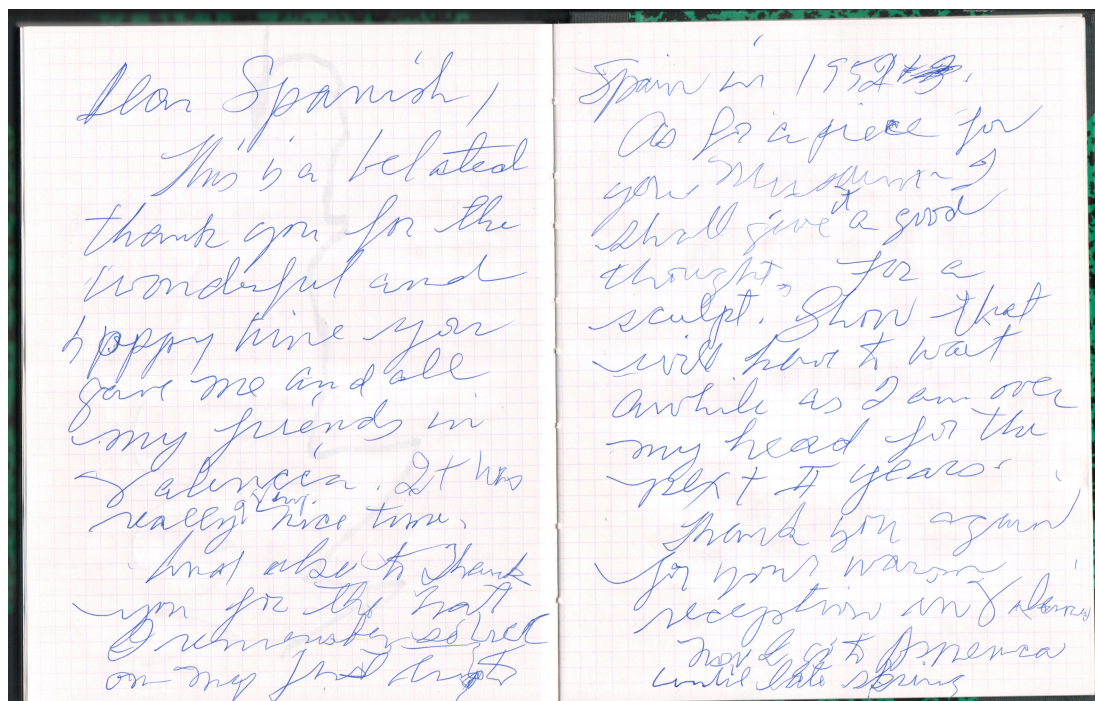 Dear Spanish,
This is a belated
thank you for the
wonderful and
happy time you
gave me and all
my friends in
Valencia. It was
really a very nice time.
And also to thank
you for the hat
I remember so well
on my first trip to
Spain in 1952
As for a piece for
your Museum I
shall give it a good
thought, for a
sculpt. Show that
will have to wait
awhile as I am over
my head for the
next II years.
Thank you again
for your warm
reception in Valencia
now I go to America
until late spring